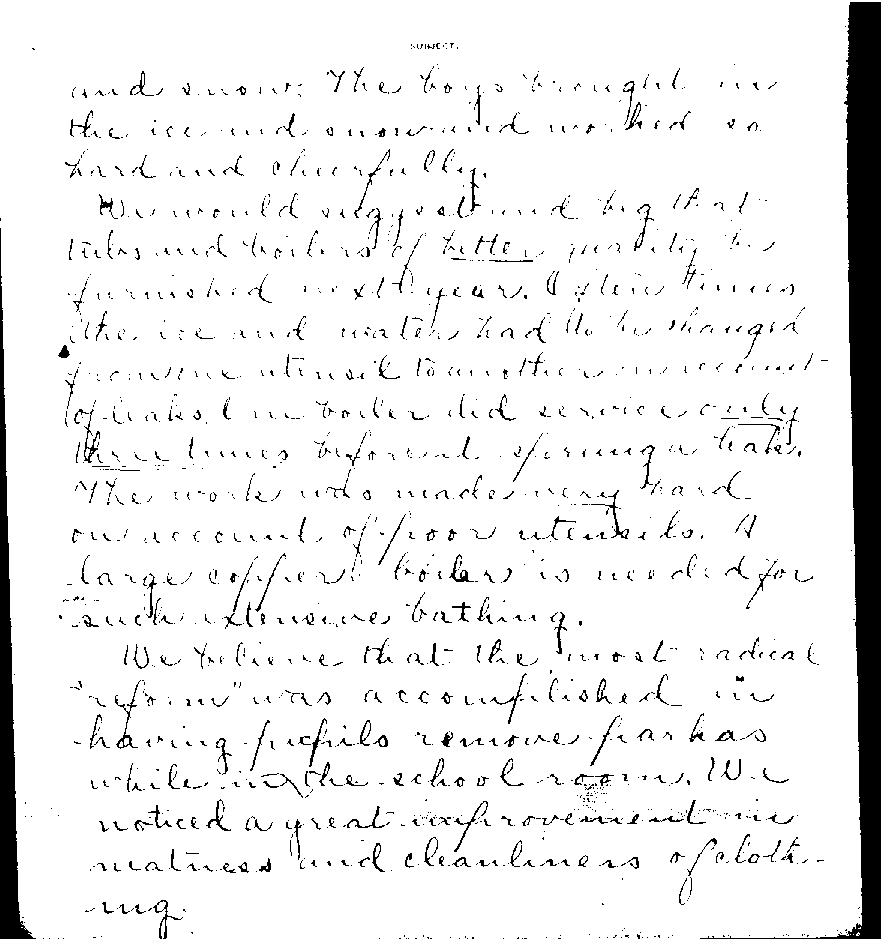 SUBJECT.
and snow. The boys brought in
the ice and snow and worked so
hard and cheerfully.
We would suggest and beg that
tubs and boilers of better quality be
furnished next year. Often times
the ice and water had to be changed
from one utensil to another on account
of leaks. One boiler did service only
three times before it sprung a leak.
The work was made very hard
on account of poor utensils. A
large copper boiler is needed for
such extensive bathing.
We believe that the most radical
"reform" was accomplished in
having pupils remove parkas
while in the school room. We
noticed a great improvement in
neatness and cleanliness of cloth-
ing.